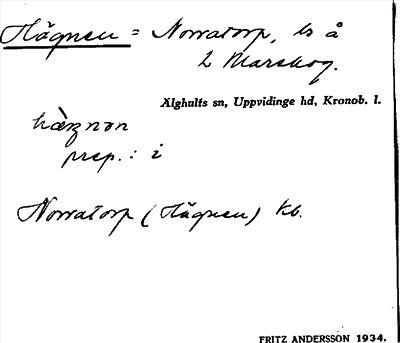 Hägnen = Norratorp, ls å
2 Marskog.
Älghults sn, Uppvidinge hd, Kronob. l.
prep.: i
Norratorp (Hägnen) Kb.
FRITZ ANDERSSON 1934.